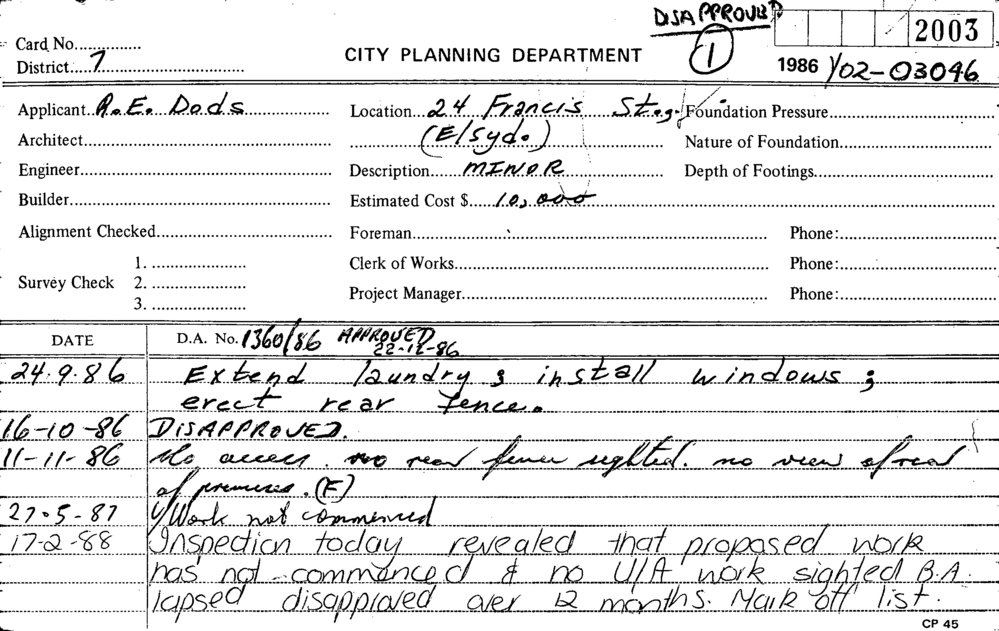 DISAPPROVED
2003
Card No...............
District.....7...............................
CITY PLANNING DEPARTMENT
1
1986 1/02-03046
Applicant R.E. Dods
Location 24 Francis St.
Foundation Pressure
Architect
(E/Syd.)
Nature of Foundation
Engineer
Description MINOR
Depth of Footings
Builder
Estimated Cost $ 10,000
Alignment Checked
Foreman
Phone:
Survey Check
1.
2.
3.
Clerk of Works
Phone:
Project Manager
Phone:
DATE
D.A. No. 1360/86 APPROVED
22-12-86
24.9.86 Extend laundry & install windows;
erect rear fence.
16-10-86 DISAPPROVED.
11-11-86 No access. no rear fence sighted. no view of rear
of premises. (F)
27.5-87 Work not commenced
17-2-88 Inspection today revealed that proposed work
has not commenced & no U/A work sighted B.A.
lapsed disapproved over 12 months. Mark off list.
CP 45